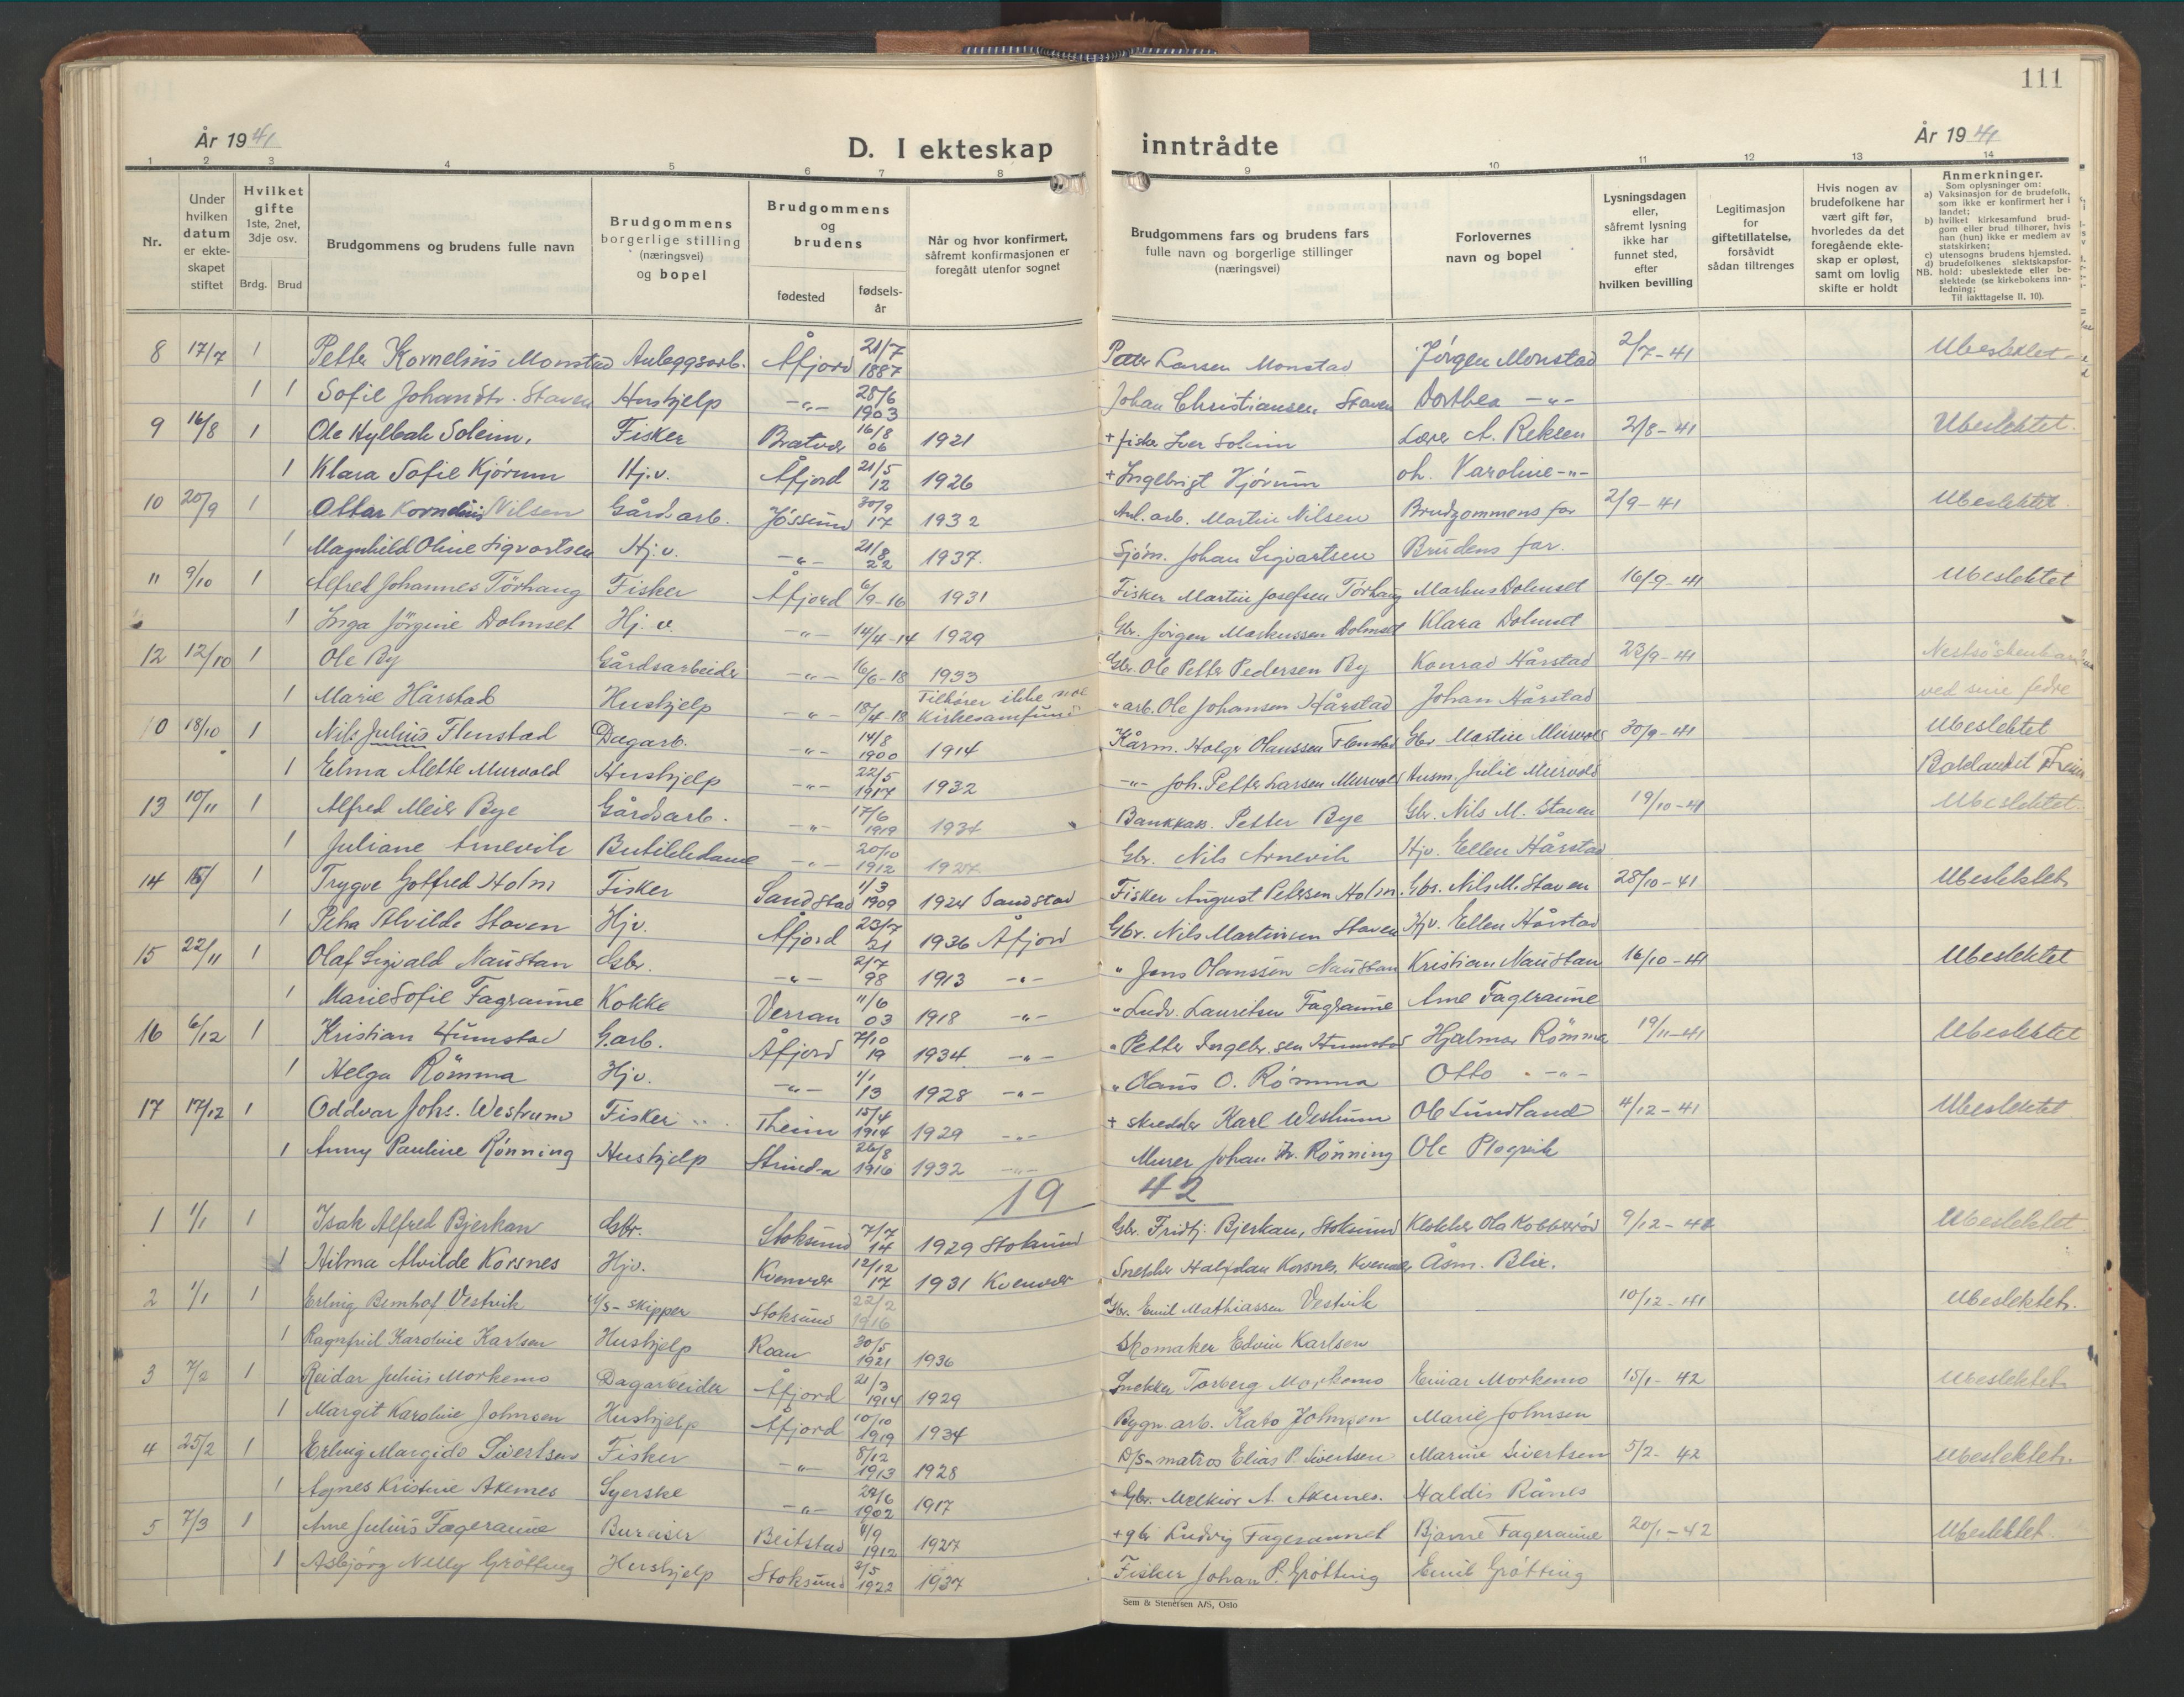 111
År 1941
D. I ekteskap inntrådte
År 1941
1 2 3 4 5 6 7 8 9 10 11 12 13 14
Nr.
Under hvilken datum er ekteskapet stiftet
Hvilket gifte 1ste, 2net, 3dje osv.
Brdg. Brud
Brudgommens og brudens fulle navn
Brudgommens borgerlige stilling (næringsvei) og bopel
Brudgommens og brudens
fødested
fødselsår
Når og hvor konfirmert, såfremt konfirmasjonen er foregått utenfor sognet
Brudgommens fars og brudens fars fulle navn og borgerlige stillinger (næringsvei)
Forlovernes navn og bopel
Lysningsdagen eller, såfremt lysning ikke har funnet sted, efter hvilken bevilling
Legitimasjon for giftetillatelse, forsåvidt sådan tiltrenges
Hvis nogen av brudefolkene har vært gift før, hvorledes da det foregående ekteskap er opløst, samt om lovlig skifte er holdt
Anmerkninger.
Som oplysninger om:
a) Vaksinasjon for de brudefolk, som ikke er konfirmert her i landet;
b) hvilket kirkesamfund brudgom eller brud tilhører, hvis han (hun) ikke er medlem av statskirken;
c) utensogns brudens hjemsted.
d) brudefolkenes slektskapsforhold: ubeslektede eller beslektede (se kirkebokens innledning;
NB.
Til iakttagelse II, 10).
8 17/7 1 Petter Kornelius Monstad Anleggsarb. Åfjord 21/7 1887 Petter Larsen Monstad Jørgen Monstad 2/7-41 Ubeslektet
1 1 Sofie Johansdtr. Staven Hushjelp -"- 28/6 1903 Johan Christiansen Staven Dorthea -"-
9 16/8 1 Ole Hylbak Soleim. Fisker Bratvær 16/8 06 1921 + fisker Iver Soleim Lærer A. Reksen 2/8-41 Ubeslektet.
1 Klara Sofie Kjørum Hj.v. Åfjord 21/5 12 1926 + Ingebrigt Kjørum oh. Karoline -"-
10 20/9 1 Ottar Kornelius Nilsen Gårdsarb. Jøssund 30/9 17 1932 Anl. arb. Martin Nilsen Brudgommens far 2/9-41 Ubeslektet.
1 Magnhild Oline Sigvartsen Hj.v. -"- 21/8 22 1937. Sjøm. Johan Sigvartsen Brudens far.
11 9/10 1 Alfred Johannes Törhaug Fisker Åfjord 6/9-16 1931 Fisker Martin Josefsen Törhaug Markus Dolmset 16/9-41 Ubeslektet
1 Inga Jörgine Dolmset Hj.v. -"- 14/4-14 1929 Gbr. Jörgen Markussen Dolmset Klara Dolmset
12 12/10 1 Ole By Gårdsarbeider -"- 16/6-18 1933 Gbr. Ole Petter Pedersen By Konrad Hårstad 23/9-41 Nestsöskenbarn
1 Marie Hårstad Hushjelp -"- 18/4-18 Tilhører ikke noe kirkesamfund " arb. Ole Johansen Hårstad Johan Hårstad ved sine fedre
10 18/10 1 Nils Julius Flenstad Dagarb. -"- 14/8 1900 1914 Kårm. Holger Olaussen Flenstad Gbr. Martin Murvold 30/9-41 Ubeslektet
1 Elma Alette Murvold Hushjelp -"- 22/5 1917 1932 -"- Joh. Petter Larsen Murvold Husm. Julie Murvold Baklandet
13 10/11 1 Alfred Meier Bye Gårdsarb. -"- 17/6 1919 1934 Bankkass. Petter Bye Gbr. Nils M. Staven 19/10-41 Ubeslektet.
1 Juliane Arnevik Butikkdame -"- 20/10 1912 1927 Gbr. Nils Arnevik Hjv. Ellen Hårstad
14 15/ 1 Trygve Gotfred Holm Fisker Sandstad 1/3 1909 1924 Sandstad Fisker August Petersen Holm. Gbr. Nils M. Staven 28/10-41 Ubeslektet.
1 Petra Alvilde Staven Hjv. Åfjord 23/7 21 1936 Åfjord Gbr. Nils Martinsen Staven Hjv. Ellen Hårstad
15 22/11 1 Olaf Sigvald Naustan Gbr. -"- 2/7 98 1913 -"- " Jens Olaussen Naustan Kristian Naustan 16/10-41 Ubeslektet
1 Marie Sofie Fagraune Kokke Verran 11/6 03 1918 -"- " Ludv. Lauritsen Fagraune Arne Fageraune
16 6/12 1 Kristian Humstad G.arb. Åfjord 7/10 19 1934. -"- " Petter Ingebr.sen Humstad Hjalmar Römma 19/11-41 Ubeslektet
1 Helga Römma Hjv. -"- 1/1 13 1928 -"- " Olaus O. Römma Otto -"-
17 17/12 1 Oddvar Johs. Westrum Fisker Theim 15/4 1914 1929 -"- + skredder Karl Westrum Ole Sundland 4/12-41 Ubeslektet
1 Anny Pauline Rønning Hushjelp Strinda 26/8 1916 1932 -"- Murer Johan Kr. Rønning Ole Plogvik
19 42
1 1/1 1 Isak Alfred Bjerkan Gbr. Stoksund 7/7 14 1929 Stoksund Gbr. Fridtj. Bjerkan, Stoksund Klokker Ola Kobberød 9/12-41 Ubeslektet
1 Hilma Alvilde Korsnes Hjv. Kvenvær 12/12 17 1931 Kvenvær Snekker Halfdan Korsnes, Kvenvær Åsm. Blix.
2 1/1 1 Erling Bernhof Vestvik M/s- skipper Stoksund 22/2 1916 Gbr. Emil Mathiassen Vestvik 10/12-41 Ubeslektet.
1 Ragnfrid Karoline Karlsen Hushjelp Roan 30/5 1921 1936 Skomaker Edvin Karlsen
3 7/2 1 Reidar Julius Morkemo Dagarbeider Åfjord 21/3 1914 1929 Snekker Torberg Morkemo Einar Morkemo 15/1-42 Ubeslektet.
1 Margit Karoline Johnsen Hushjelp Åfjord 10/10 1919 1934 Bygn. arb. Kato Johnsen Marie Johnsen
4 25/2 1 Erling Margido Sivertsen Fisker -"- 8/12 1913 1928 D/s- matros Elias P. Sivertsen Marine Sivertsen 5/2-42 Ubeslektet.
1 Agnes Kristine Aknes Syerske -"- 24/6 1902 1917 Gbr. Melkior A. Aknes. Haldis Rånes
5 7/3 1 Arne Julius Fageraune Bureiser Beitstad 4/9 1912 1927 + gbr Ludvig Fageraunet Bjarne Fageraune 20/1-42 Ubeslektet
1 Asbjørg Nelly Grötting Hushjelp Stoksund 3/5 1922 1937 Fisker Johan P. Grötting Emil Grötting
Sem & Stenersen A/S, Oslo